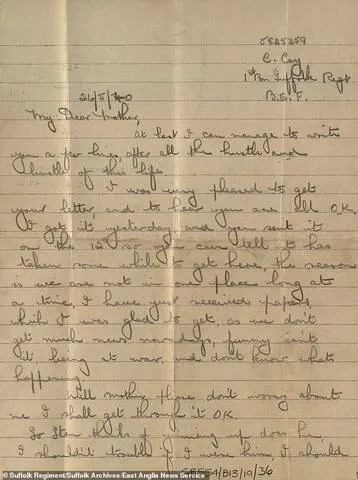 5825259
C. Coy
1st Bn Suffolk Regt
B.E.F.
26/5/40
My Dear Mother,
At last I can manage to write
you a few lines, after all the hustle and
bustle of this life
I was very pleased to get
your letter, and to hear you are all O.K.
I got it yesterday, and you sent it
on the 12th so you can tell it has
taken some while to get here, the reason
is we are not in one place long at
a time, I have just received papers,
which I was glad to get, as we don't
get much news nowdays, funny isn't
it being at war, and don't know whats
happening
Well mother please don't worry about
me I shall get through it OK.
So Stan thinks of joining up does he
I shouldn't trouble if I were him, I should
554/B13/19/36
© Suffolk Regiment/Suffolk Archives/East Anglia News Service